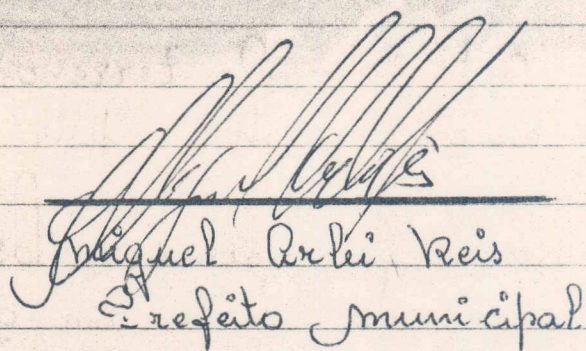 Miguel Arlei Reis
Prefeito Municipal